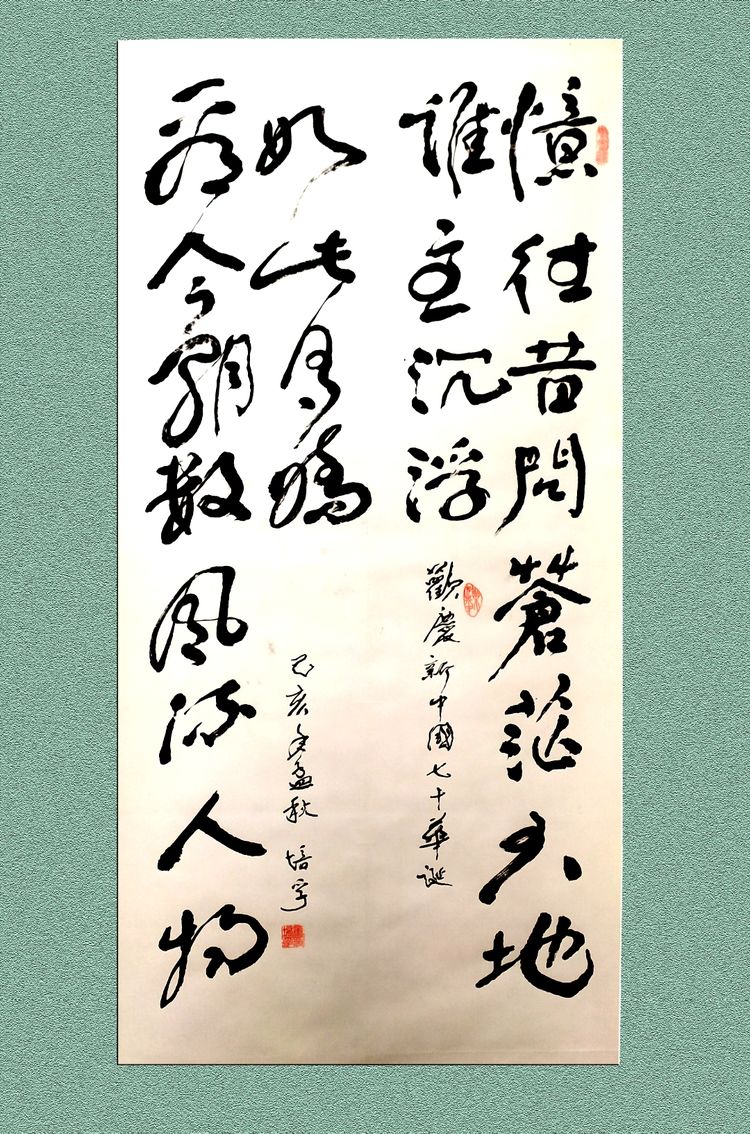 憶往昔問蒼茫大地
誰主沉浮
歡慶新中國七十華誕
看今朝數風流人物
如此多嬌
己亥年孟秋 培宇